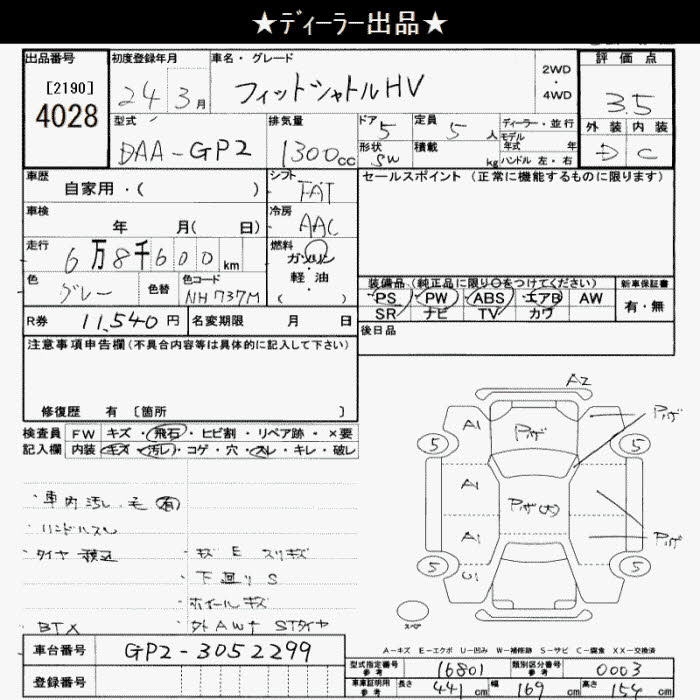 ★ディーラー出品★
出品番号
[2190]
4028
初度登録年月
24年3月
車名・グレード
フィットシャトルHV
2WD
・
4WD
評価点
3.5
外装 内装
D C
型式
DAA-GP2
排気量
1300cc
ドア 5
形状 SW
定員 5人
積載 kg
ディーラー・並行
モデル
年式 年
ハンドル 左・右
車歴
自家用・( )
シフト
FAT
車検
年 月( 日)
冷房
AAC
走行
6万8千600km
燃料
ガソリン
・
軽油
( )
色
グレー
色替
色コード
NH737M
セールスポイント (正常に機能するものに限ります)
装備品 (純正品に限り○をつけてください)
PS PW ABS エアB AW
SR ナビ TV カワ
新車保証書
有・無
R券 11,540円
名変期限 月 日
後日品
注意事項申告欄(不具合内容等は具体的に記入して下さい)
修復歴 有 [箇所 ]
検査員 FW キズ・飛石・ヒビ割・リペア跡・×要
記入欄 内装 キズ・汚レ・コゲ・穴・スレ・キレ・破レ
・車内汚レ、毛(有)
・ハンドルスレ
・タイヤ 積込
・キズ E スリキズ
・下廻りS
・ホイールキズ
・BTX
・外AW付 STタイヤ
A2
A1
Pカザ
Pカザ
5
5
A1
Pカザ(大)
A1
Pカザ
5
5
U1
スペア
A-キズ E-エクボ U-凹み W-補修跡 S-サビ C-腐食 XX-交換済
車台番号 GP2-3052299
登録番号
型式指定番号
参考
16801
類別区分番号
参考
0003
車庫証明用
参考
長さ 441cm
幅 169cm
高さ 154cm